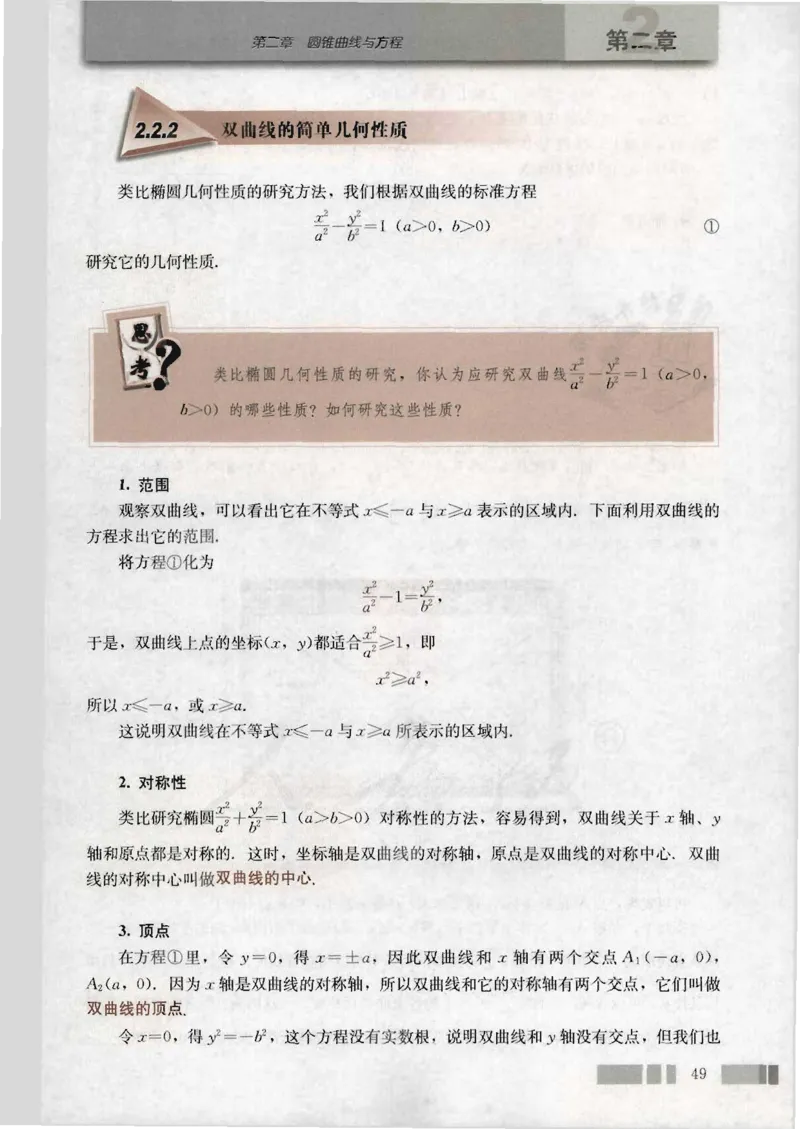 第二章 圆锥曲线与方程
第二章
2.2.2 双曲线的简单几何性质
类比椭圆几何性质的研究方法，我们根据双曲线的标准方程
x²/a²－y²/b²＝1（a＞0，b＞0） ①
研究它的几何性质.
思考？
类比椭圆几何性质的研究，你认为应研究双曲线x²/a²－y²/b²＝1（a＞0，
b＞0）的哪些性质？如何研究这些性质？
1. 范围
观察双曲线，可以看出它在不等式 x≤－a 与 x≥a 表示的区域内. 下面利用双曲线的
方程求出它的范围.
将方程①化为
x²/a²－1＝y²/b²，
于是，双曲线上点的坐标(x，y)都适合x²/a²≥1，即
x²≥a²，
所以 x≤－a，或 x≥a.
这说明双曲线在不等式 x≤－a 与 x≥a 所表示的区域内.
2. 对称性
类比研究椭圆x²/a²＋y²/b²＝1（a＞b＞0）对称性的方法，容易得到，双曲线关于 x 轴、y
轴和原点都是对称的. 这时，坐标轴是双曲线的对称轴，原点是双曲线的对称中心. 双曲
线的对称中心叫做双曲线的中心.
3. 顶点
在方程①里，令 y＝0，得 x＝±a，因此双曲线和 x 轴有两个交点 A₁(－a，0)，
A₂(a，0). 因为 x 轴是双曲线的对称轴，所以双曲线和它的对称轴有两个交点，它们叫做
双曲线的顶点.
令 x＝0，得 y²＝－b²，这个方程没有实数根，说明双曲线和 y 轴没有交点，但我们也
49